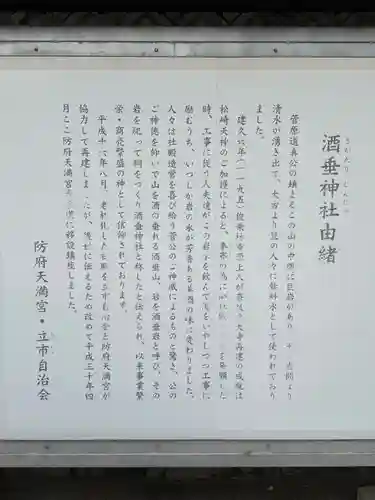 酒垂神社由緒
さかたり じんじゃ
菅原道真公の鎮まるこの山の中腹に巨岩があり 岩間より
清水が湧き出て、太古より里の人々に飲料水として使われており
ました。
建久六年(一一九五)俊乗坊重源上人が奈良 東大寺再建の成就は
松崎天神のご加護によると、
時、工事に従う人夫達がこの岩水を飲んで
をいやしつつ工事に
励むうち、いつしか岩の水が芳香ある
酒の味に変わりました。
人々は社殿造営を喜び給う菅公のご神威によるものと驚き、公の
ご神徳を仰いで山を酒の垂れる酒垂山、岩を酒垂岩と呼び、その
岩を祀って祠をつくり酒垂神社と称したと伝えられ、以来事業繁
栄・商売繁盛の神として信仰されております。
平成十 年八月、老朽化した
を立市自治会と防府天満宮が
協力して再建しましたが、後世に伝えるため改めて平成三十年四
月ここ防府天満宮
に移設鎮座しました。
防府天満宮・立市自治会